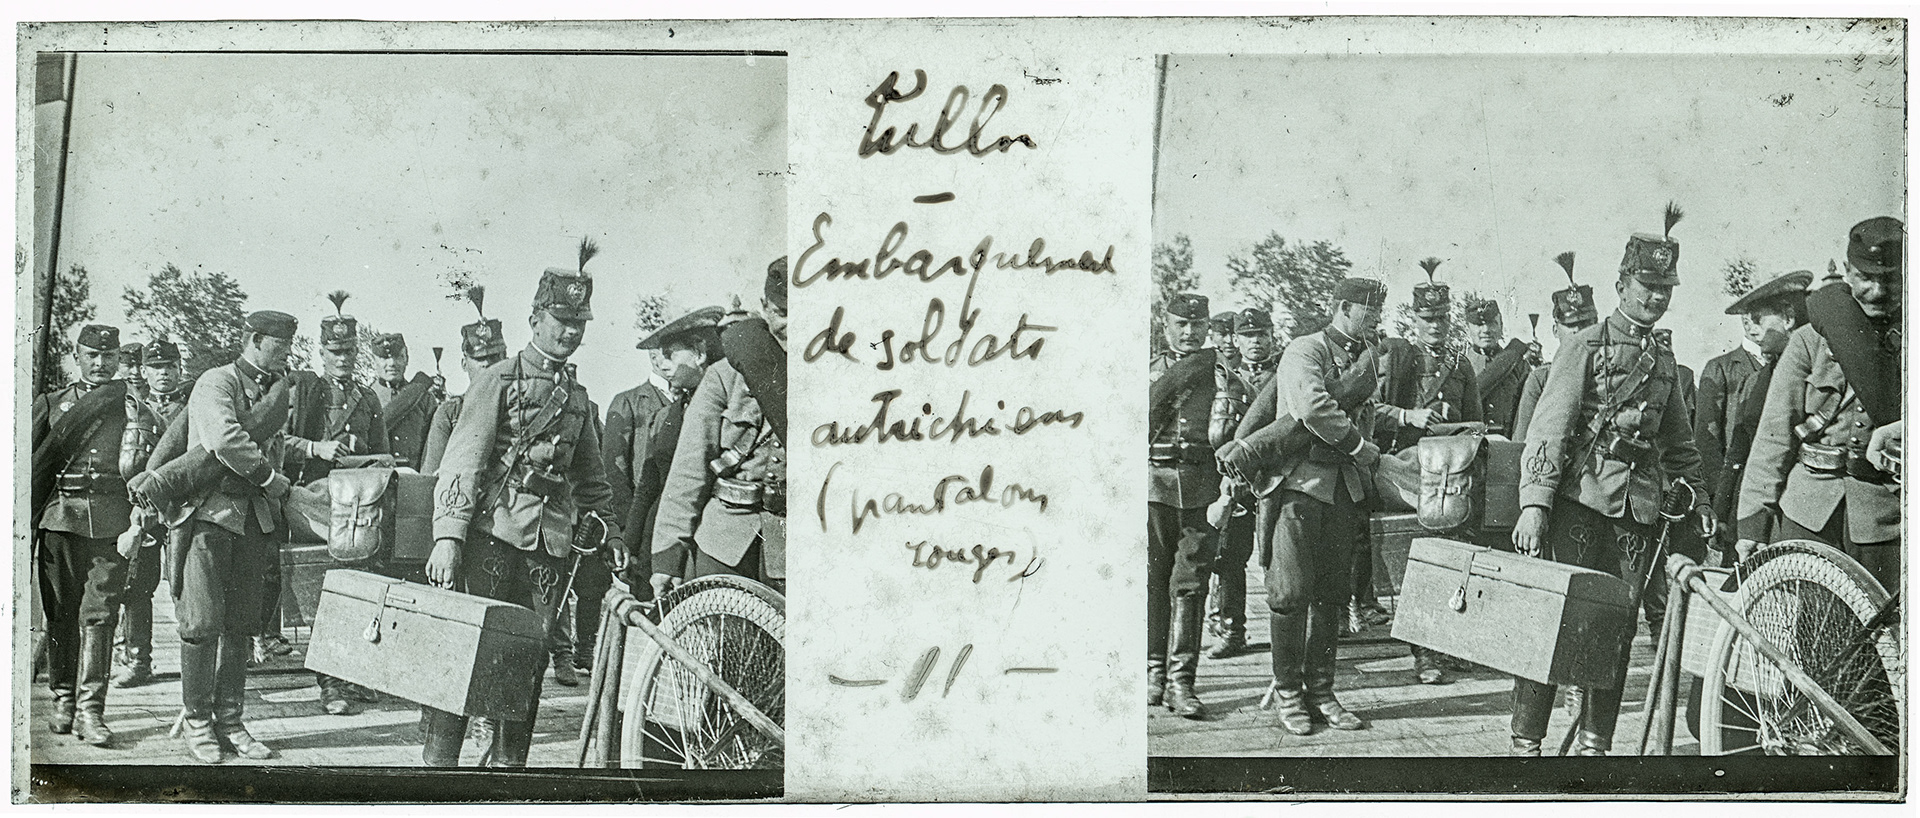 Tulln
—
Embarquement
de soldats
autrichiens
(pantalons
rouges)
— 11 —